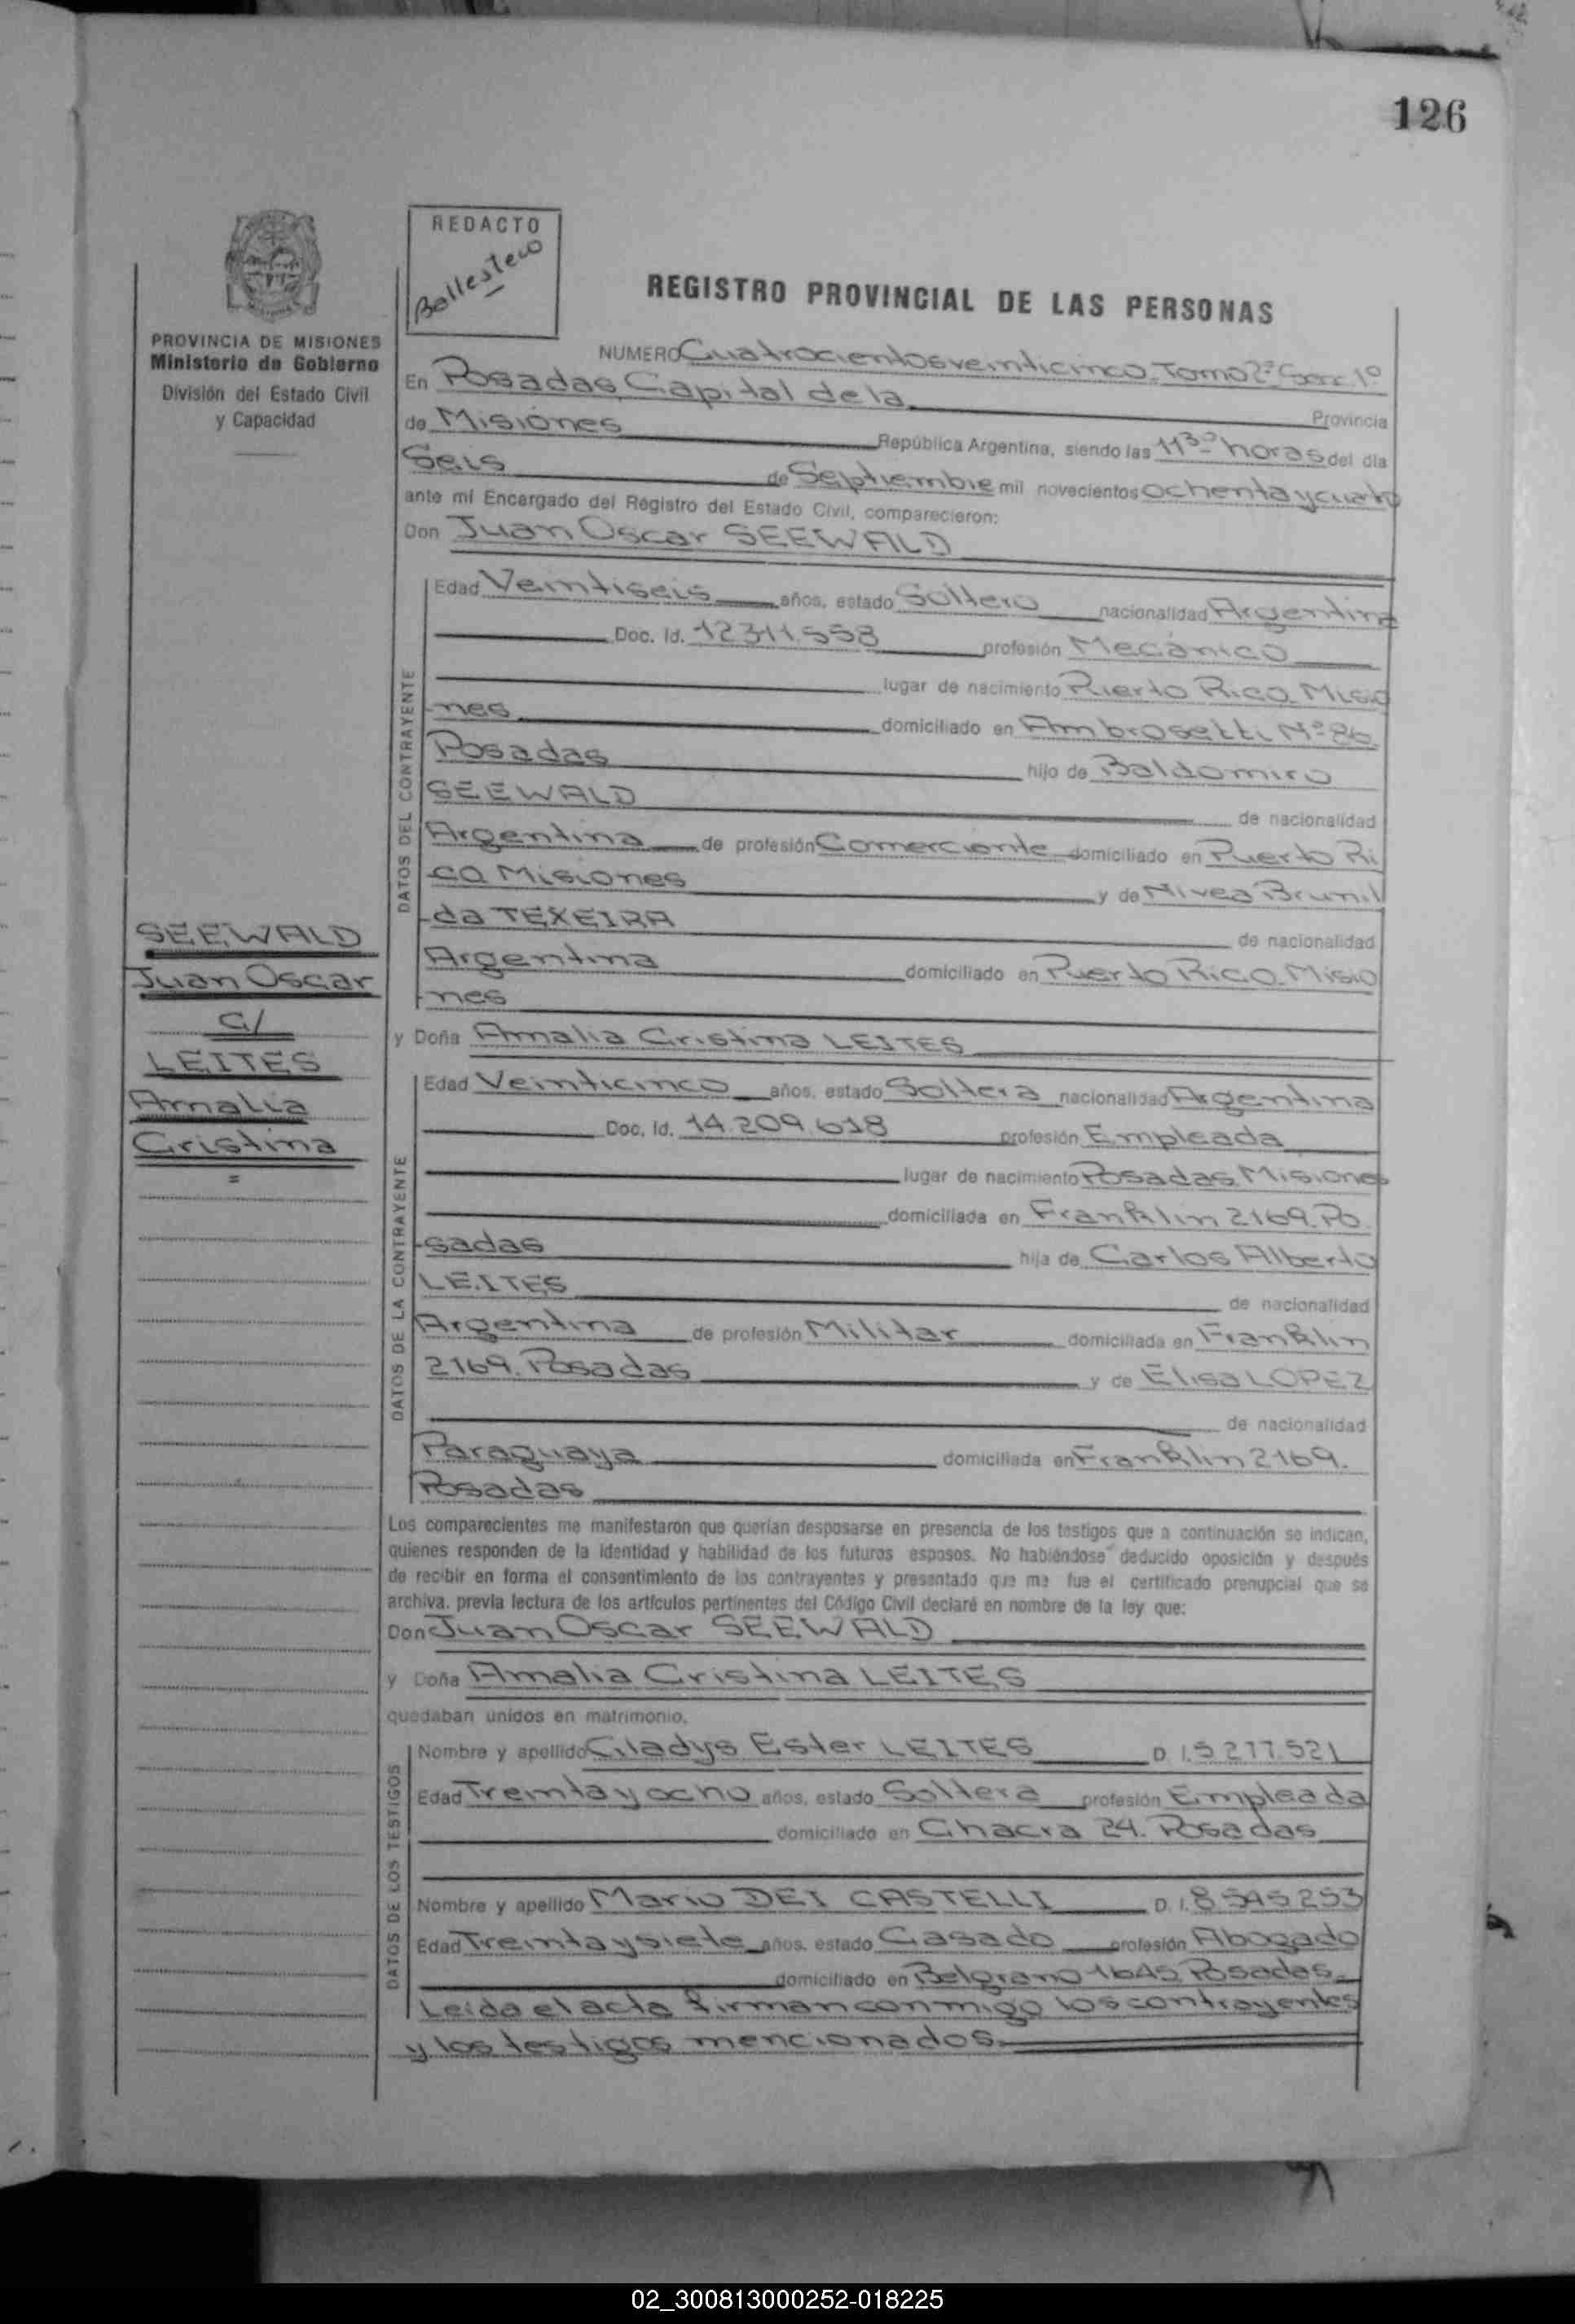 126
REDACTO
Ballestero
REGISTRO PROVINCIAL DE LAS PERSONAS
PROVINCIA DE MISIONES
Ministerio de Gobierno
División del Estado Civil
y Capacidad
NUMERO Cuatrocientos veinticinco. Tomo 2º 1º
En Posadas, Capital de la Provincia
de Misiones República Argentina, siendo las 11 30 horas del día
Seis de Septiembre mil novecientos ochenta y cuatro
ante mí Encargado del Registro del Estado Civil, comparecieron:
Don Juan Oscar SEEWALD
DATOS DEL CONTRAYENTE
Edad Veintiseis años, estado Soltero nacionalidad Argentina
Doc. Id. 12.311.558 profesión Mecánico
lugar de nacimiento Puerto Rico. Misio
nes domiciliado en Ambrosetti Nº 86.
Posadas hijo de Baldomiro
SEEWALD de nacionalidad
Argentina de profesión Comerciante domiciliado en Puerto Ri
co. Misiones y de Nivea Brunil
da TEXEIRA de nacionalidad
Argentina domiciliado en Puerto Rico. Misio
nes
SEEWALD
Juan Oscar
c/
LEITES
Amalia
Cristina
=
y Doña Amalia Cristina LEITES
DATOS DE LA CONTRAYENTE
Edad Veinticinco años, estado Soltera nacionalidad Argentina
Doc. Id. 14.209.618 profesión Empleada
lugar de nacimiento Posadas. Misiones
domiciliada en Franklin 2169. Po
sadas hija de Carlos Alberto
LEITES de nacionalidad
Argentina de profesión Militar domiciliada en Franklin
2169. Posadas y de Elisa LOPEZ
de nacionalidad
Paraguaya domiciliada en Franklin 2169.
Posadas
Los comparecientes me manifestaron que querían desposarse en presencia de los testigos que a continuación se indican,
quienes responden de la identidad y habilidad de los futuros esposos. No habiéndose deducido oposición y después
de recibir en forma el consentimiento de los contrayentes y presentado que me fue el certificado prenupcial que se
archiva, previa lectura de los artículos pertinentes del Código Civil declaré en nombre de la ley que:
Don Juan Oscar SEEWALD
y Doña Amalia Cristina LEITES
quedaban unidos en matrimonio.
DATOS DE LOS TESTIGOS
Nombre y apellido Gladys Ester LEITES D. I. 5.277.521
Edad Treinta y ocho años, estado Soltera profesión Empleada
domiciliado en Chacra 24. Posadas
Nombre y apellido Mario DEI CASTELLI D. I. 8.545.253
Edad Treinta y siete años, estado Casado profesión Abogado
domiciliado en Belgrano 1645. Posadas.
Leida el acta firman conmigo los contrayentes
y los testigos mencionados.
02_300813000252-018225